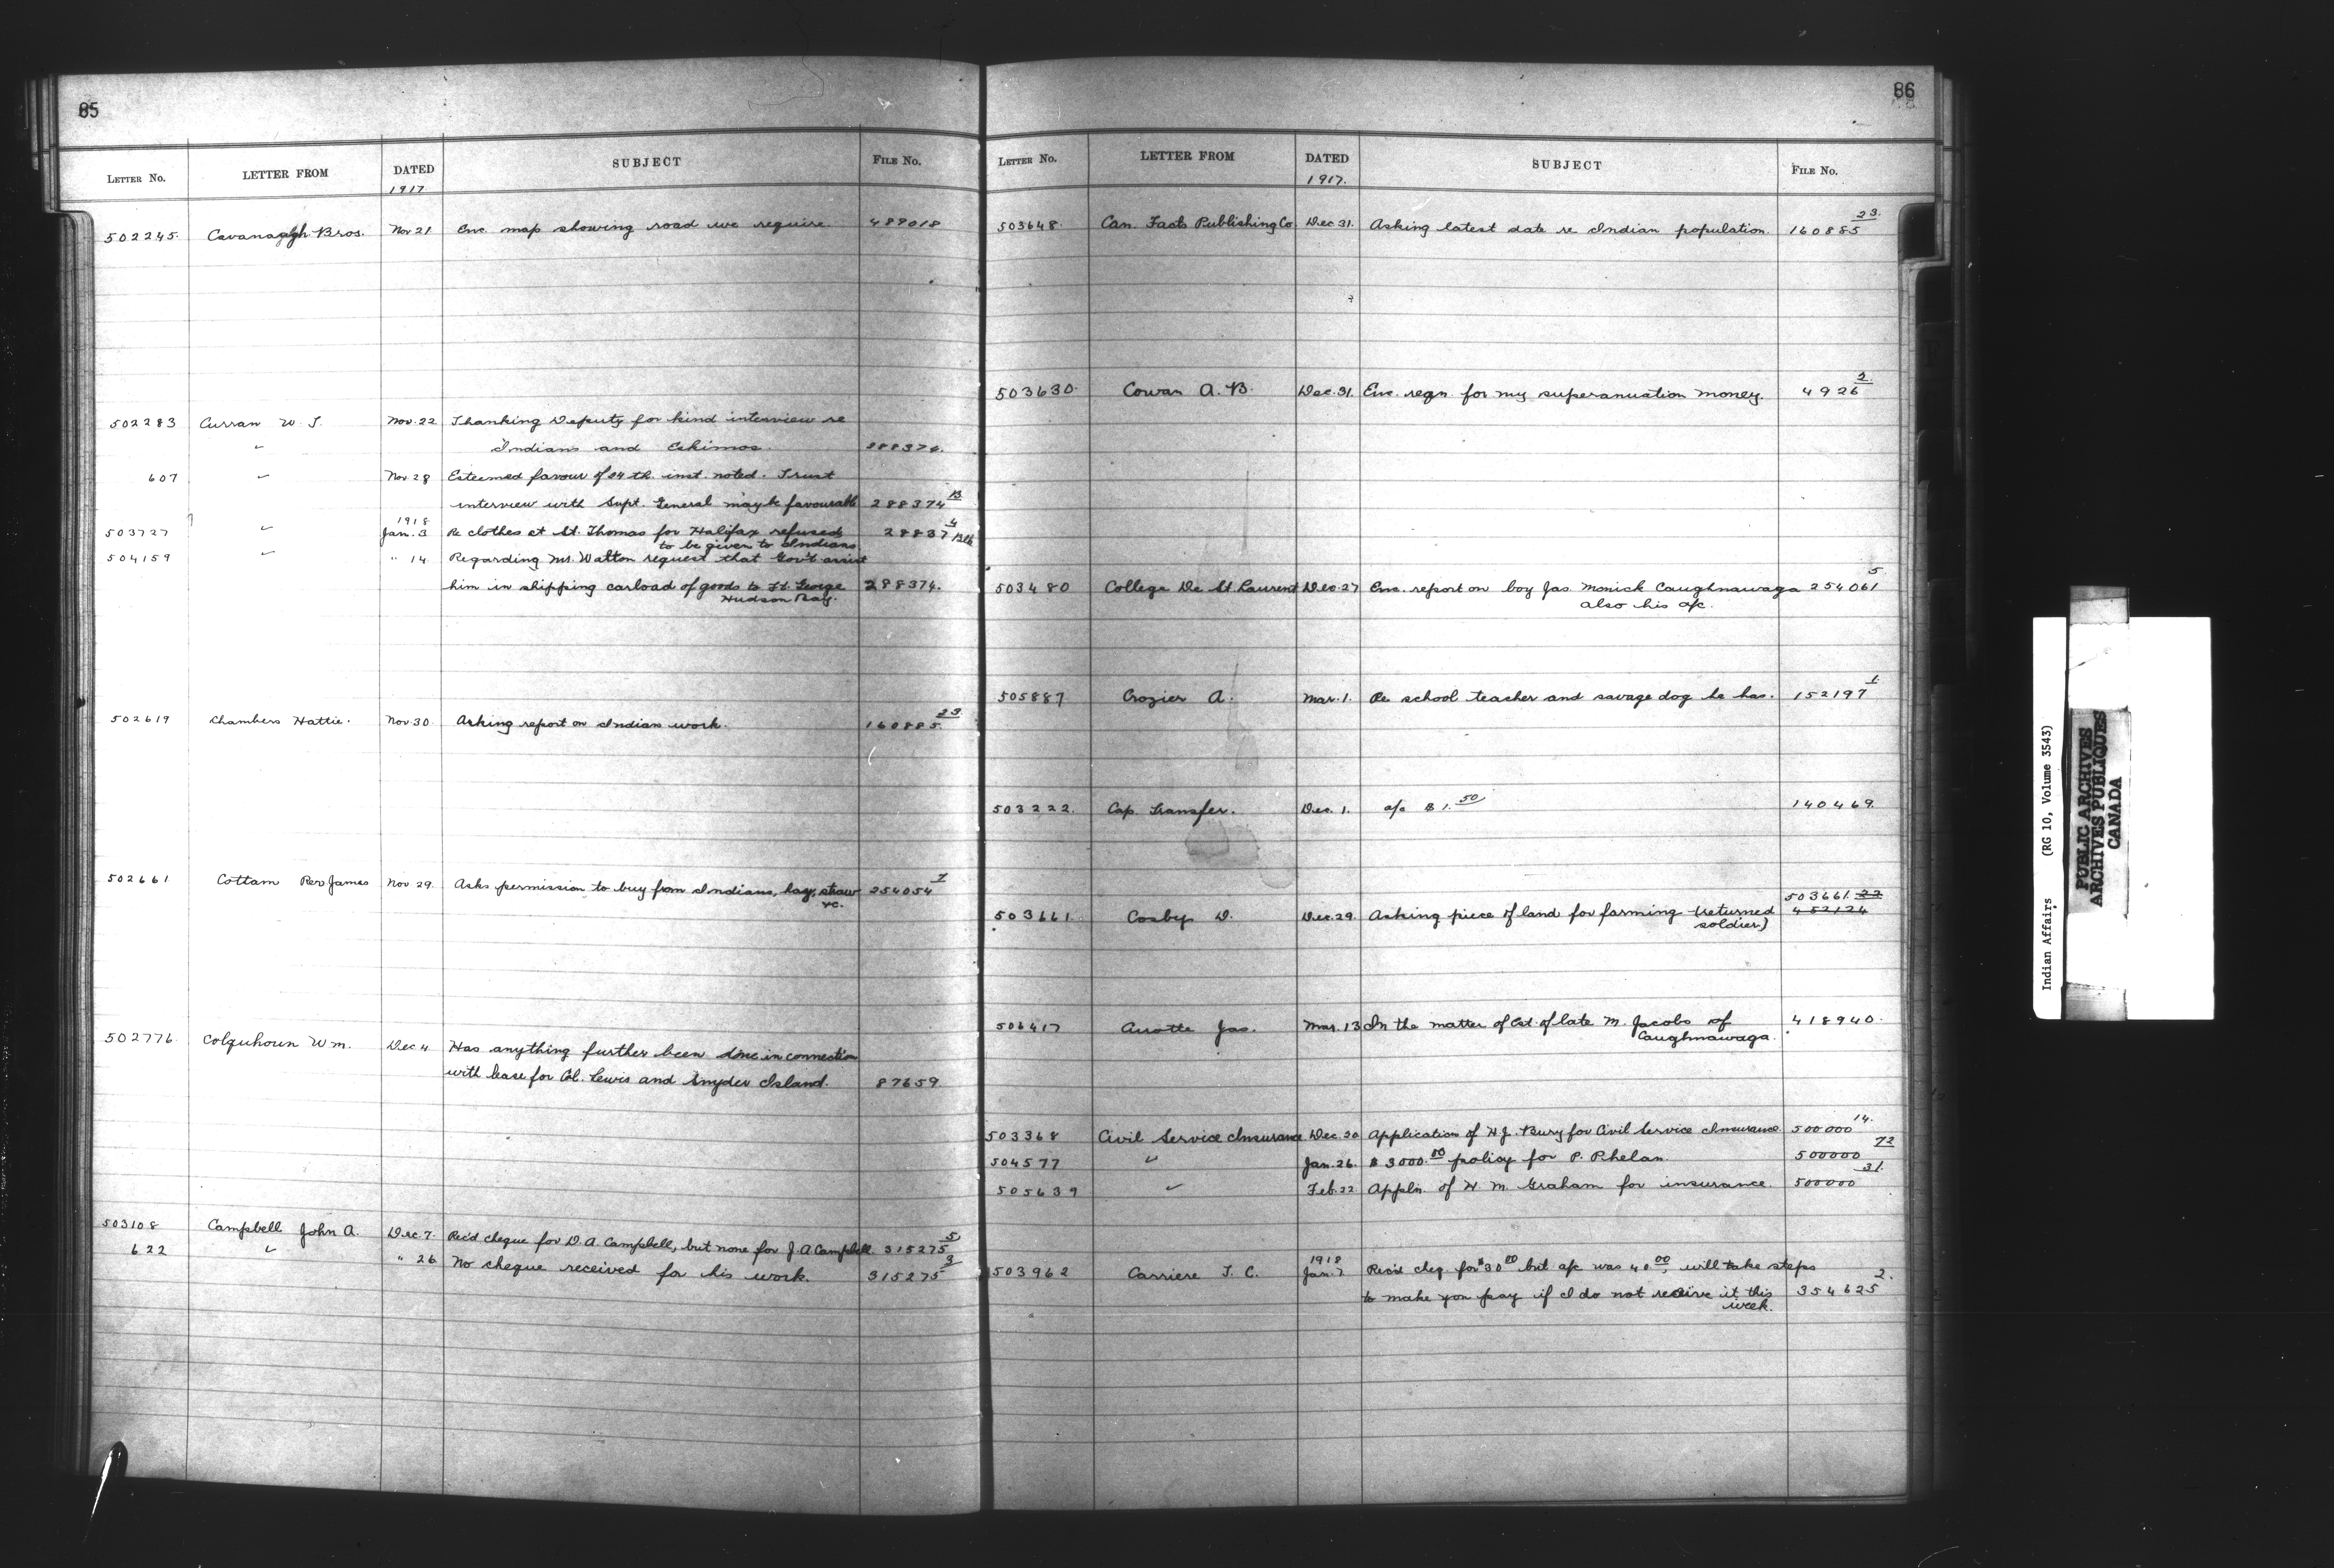 85
LETTER No. LETTER FROM DATED SUBJECT FILE No.
1917
502245 Cavanagh Bros. Nov 21 Enc. map showing road we require. 489018
502283 Curran W. J. Nov. 22 Thanking Deputy for kind interview re
" Indians and Eskimos. 288374.
607 " Nov. 28 Esteemed favour of 24 th. inst. noted. Trust
interview with Supt. General may be favourable 288374 B
1918
503727 " Jan. 3 Re clothes at St. Thomas for Halifax refused 28837 4
to be given to Indians
504159 " " 14 Regarding Mr. Walton request that Gov't assist
him in shipping carload of goods to Ft. George 288374.
Hudson Bay.
502619 Chambers Hattie. Nov 30. Asking report on Indian work. 160885 23
502661 Cottam Rev James Nov 29. Asks permission to buy from Indians, hay, straw 254054 7
&c.
502776 Colquhoun Wm. Dec 4 Has anything further been done in connection
with lease for Col. Lewis and Snyder Island. 87659
503108 Campbell John A. Dec. 7. Rec'd cheque for D. A. Campbell, but none for J. A Campbell. 315275 5
622 " " 26 No cheque received for his work. 315275 3
86
LETTER No. LETTER FROM DATED SUBJECT FILE No.
1917.
503648. Can. Facts Publishing Co Dec 31. Asking latest date re Indian population. 160885 23.
503630. Cowan A. B. Dec. 31. Enc. reqn. for my superanuation money. 4926 2.
503480 College De St. Laurent Dec. 27 Enc. report on boy Jas. Monick Caughnawaga 254061 5
also his a/c.
505887 Crozier A. Mar. 1. Re school teacher and savage dog he has. 152197 1
503222. Cap. Transfer. Dec. 1. a/c $1.50 140469.
503661 22
503661. Cosby D. Dec. 29. Asking piece of land for farming (returned 452124
soldier)
506417 Jas. Mar. 13 In the matter of Est. of late M. Jacobs of 418940.
Caughnawaga.
503368 Civil Service Insurance Dec. 20 Application of H. J. Bury for Civil Service Insurance. 500000 14.
504577 " Jan. 26. $3000.00 policy for P. Phelan. 500000 72
505639 " Feb. 22 Appln. of H. M. Graham for insurance. 500000 31.
1918
503962 Carriere J. C. Jan. 7. Rec'd cheq. for $30.00 but a/c was 40.00, will take steps
to make you pay if I do not receive it this 354625 2.
week.
Indian Affairs (RG 10, Volume 3543)
PUBLIC ARCHIVES
ARCHIVES PUBLIQUES
CANADA